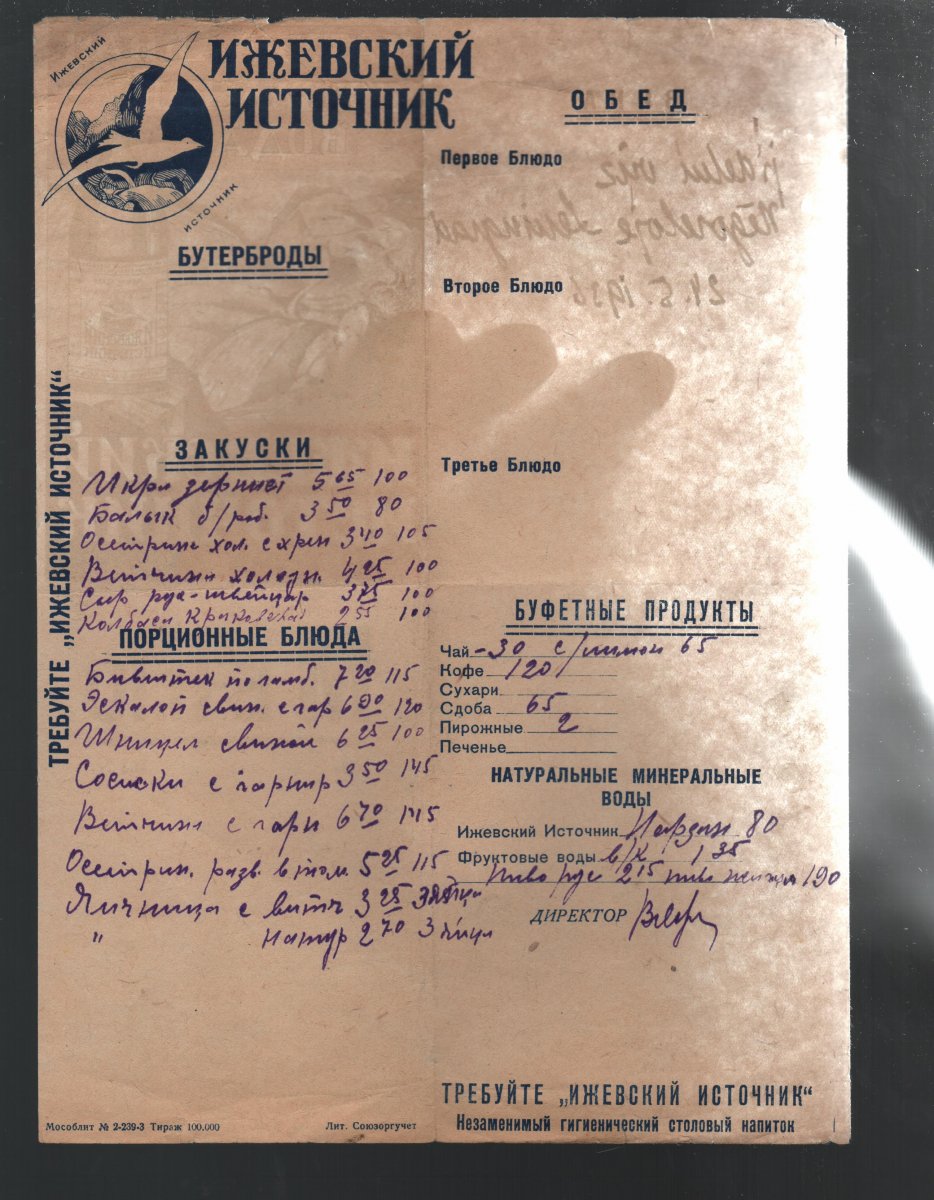 Ижевский
источник
ИЖЕВСКИЙ
ИСТОЧНИК
БУТЕРБРОДЫ
ЗАКУСКИ
Икра зернист 5 65 100
Балык б/рыб. 3 50 80
Осетрина хол. с хрен 3 40 105
Ветчина холодн. 4 25 100
Сыр рус-швейцар 3 75 100
Колбаса Краковская 2 55 100
ПОРЦИОННЫЕ БЛЮДА
Бифштек по гамб. 7 20 115
Эскалоп свин. с гар 6 90 120
Шницел свиной 6 25 100
Сосиски с гарнир 3 50 145
Ветчина с гарн 6 70 145
Осетрин. разв. в том. 5 25 115
Яичница с ветч 3 25
" натур 2 70 3 яйца
ТРЕБУЙТЕ „ИЖЕВСКИЙ ИСТОЧНИК“
ОБЕД
Первое Блюдо
Второе Блюдо
Третье Блюдо
Negoreloje Leningrad
21.5.1936
БУФЕТНЫЕ ПРОДУКТЫ
Чай -30 с/лимон 65
Кофе 120
Сухари
Сдоба 65
Пирожные 2
Печенье
НАТУРАЛЬНЫЕ МИНЕРАЛЬНЫЕ
ВОДЫ
Ижевский Источник Нарзан 80
Фруктовые воды в/к 1 35
Пиво рус 2 15 пиво 190
ДИРЕКТОР
ТРЕБУЙТЕ „ИЖЕВСКИЙ ИСТОЧНИК“
Незаменимый гигиенический столовый напиток
Мособлит № 2-239-3 Тираж 100.000
Лит. Союзоргучет